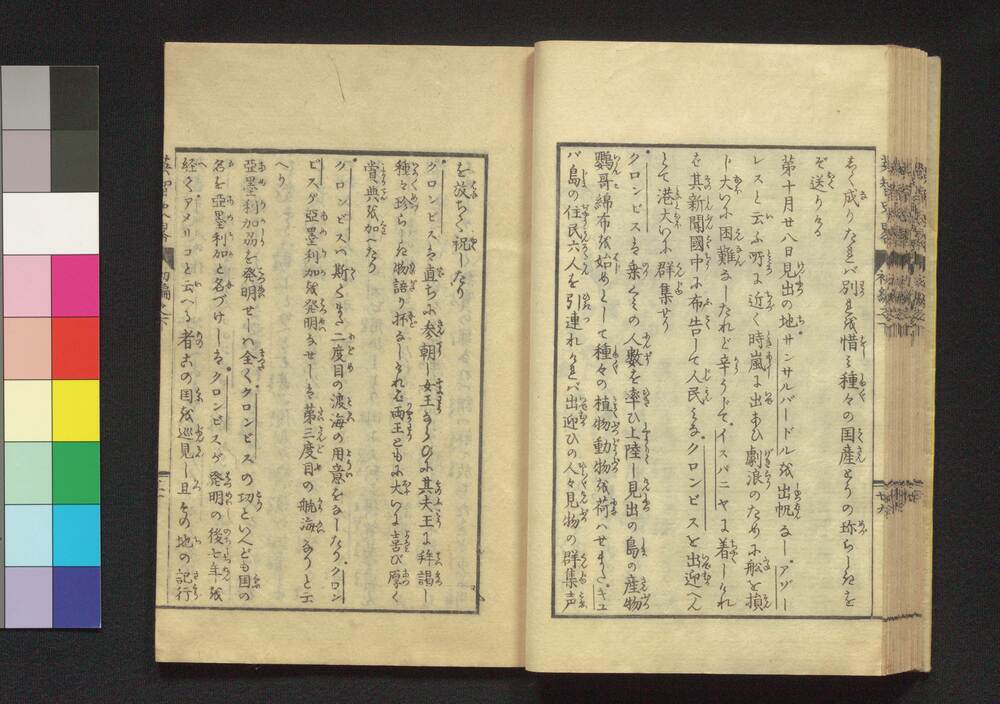 しく成りたれバ別れを惜ミ種々の国産とりの珍らしきを
ぞ送りける
第十月廿八日見出の地サンサルバードルを出帆なしアゾー
レスと云ふ所に近く時嵐に出あひ劇浪のために舩を損
じ大いに困難なしたれど辛うじてイスパニヤに着しけれ
を其新聞國中に布告して人民ミなクロンビスを出迎へん
とて港大いに群集せり
クロンビスを乗くミの人數を率ひ上陸し見出の島の産物
鸚哥綿布を始めとして種々の植物動物を荷ハせまたキユ
バ島の住民六人を引連れけれバ出迎ひの人々見物の群集声
を放ちて祝したり
クロンビスハ直ちに参朝し女王ならびに其夫王に拝謁し
種々珍らしき物語り抔なしけれバ両王ともに大いに喜び厚く
賞典を加へたり
クロンビスハ斯くてまた二度目の渡海の用意をなしたりクロン
ビスが亞墨利加を発明なせしハ第三度目の航海なりと云
へり
亞墨利加洲を発明せしハ全くクロンビスの功といへども国の
名を亞墨利加と名づけしハクロンビスが発明の後七年を
経てアメリコと云へる者この国を巡見し且その地の記行